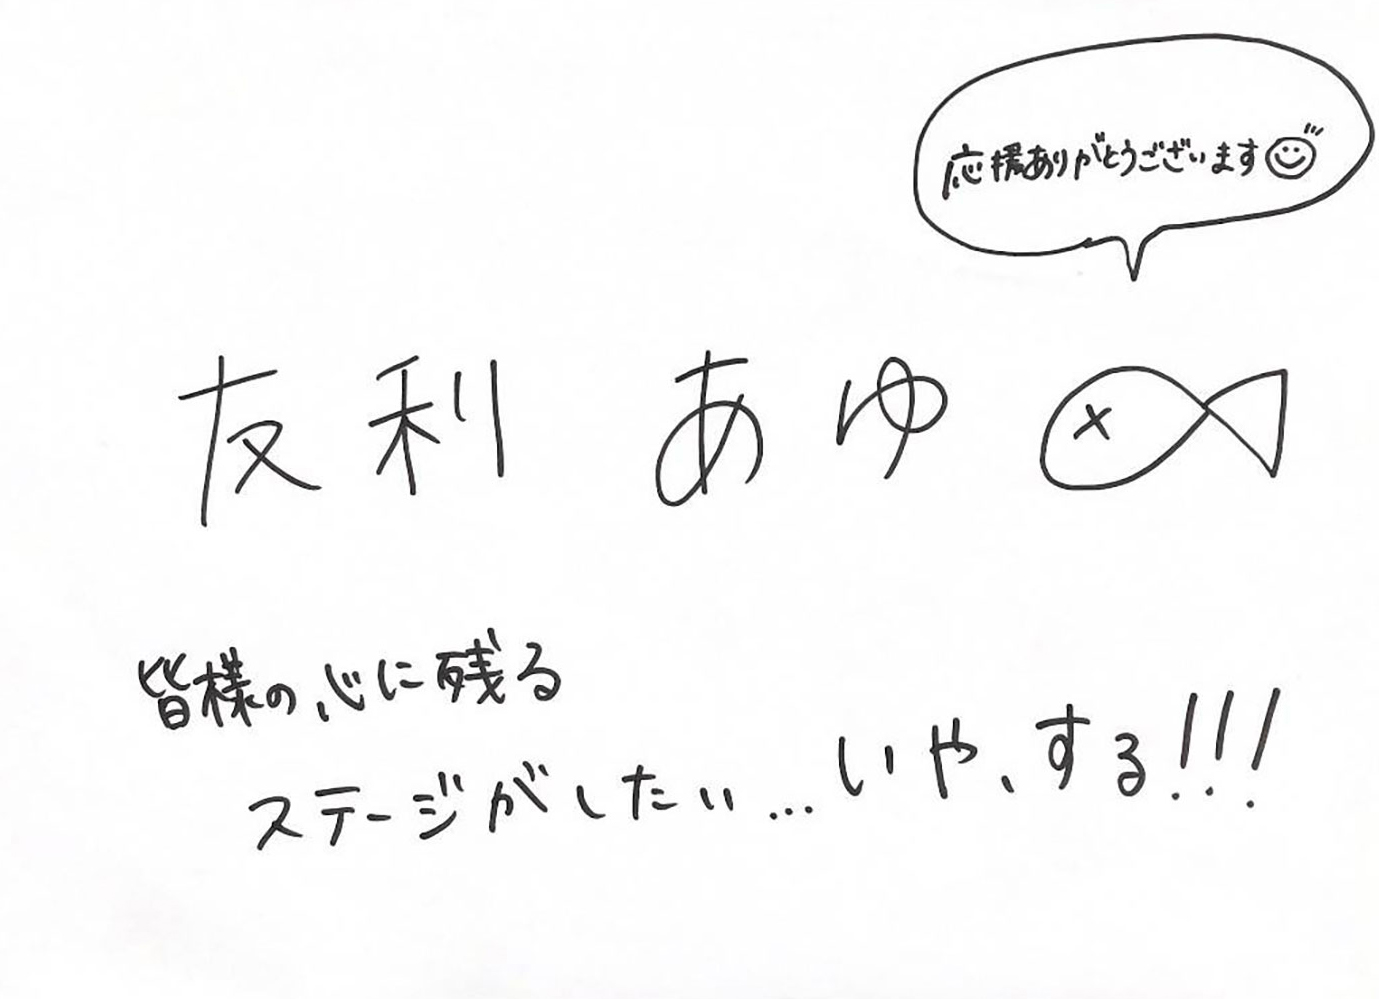 応援ありがとうございます
友利 あゆ
皆様の心に残る
ステージがしたい…いや、する!!!